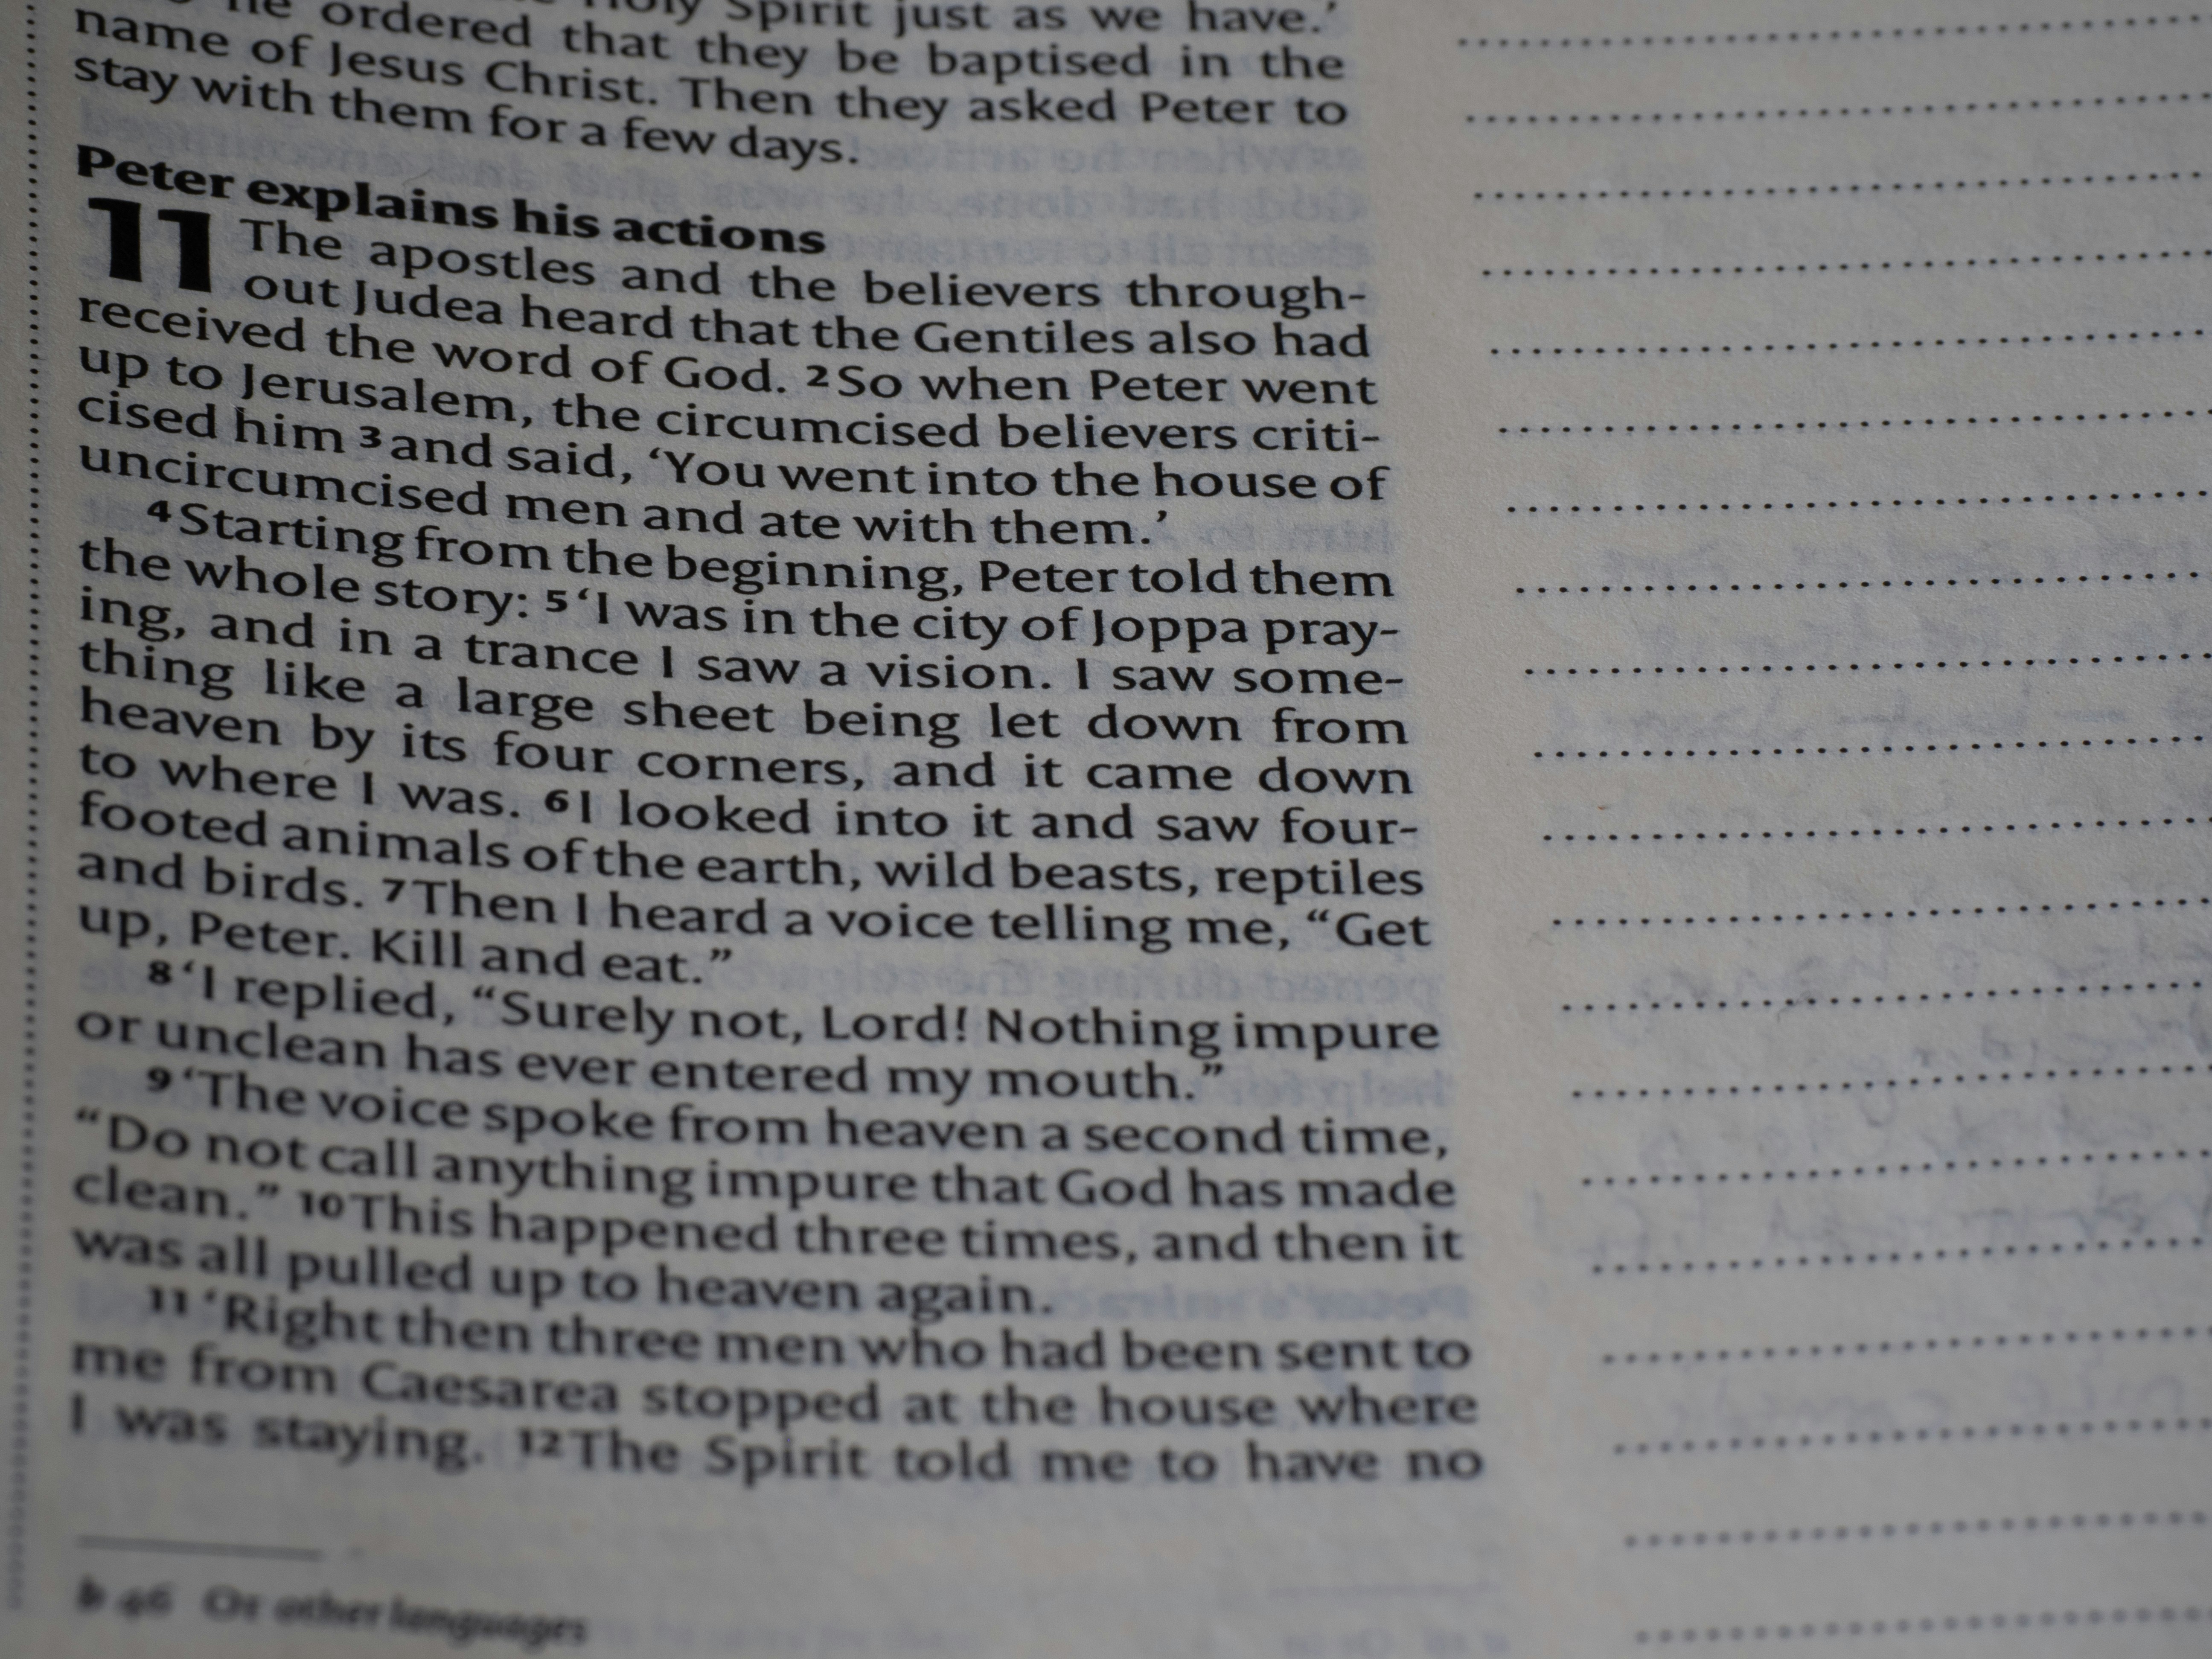 he ordered that they be baptised in the
Holy Spirit just as we have.’
name of Jesus Christ. Then they asked Peter to
stay with them for a few days.
Peter explains his actions
11 The apostles and the believers through-
out Judea heard that the Gentiles also had
received the word of God. 2 So when Peter went
up to Jerusalem, the circumcised believers criti-
cised him 3 and said, ‘You went into the house of
uncircumcised men and ate with them.’
4 Starting from the beginning, Peter told them
the whole story: 5 ‘I was in the city of Joppa pray-
ing, and in a trance I saw a vision. I saw some-
thing like a large sheet being let down from
heaven by its four corners, and it came down
to where I was. 6 I looked into it and saw four-
footed animals of the earth, wild beasts, reptiles
and birds. 7 Then I heard a voice telling me, “Get
up, Peter. Kill and eat.”
8 ‘I replied, “Surely not, Lord! Nothing impure
or unclean has ever entered my mouth.”
9 ‘The voice spoke from heaven a second time,
“Do not call anything impure that God has made
clean.” 10 This happened three times, and then it
was all pulled up to heaven again.
11 ‘Right then three men who had been sent to
me from Caesarea stopped at the house where
I was staying. 12 The Spirit told me to have no
b 46 Or other languages